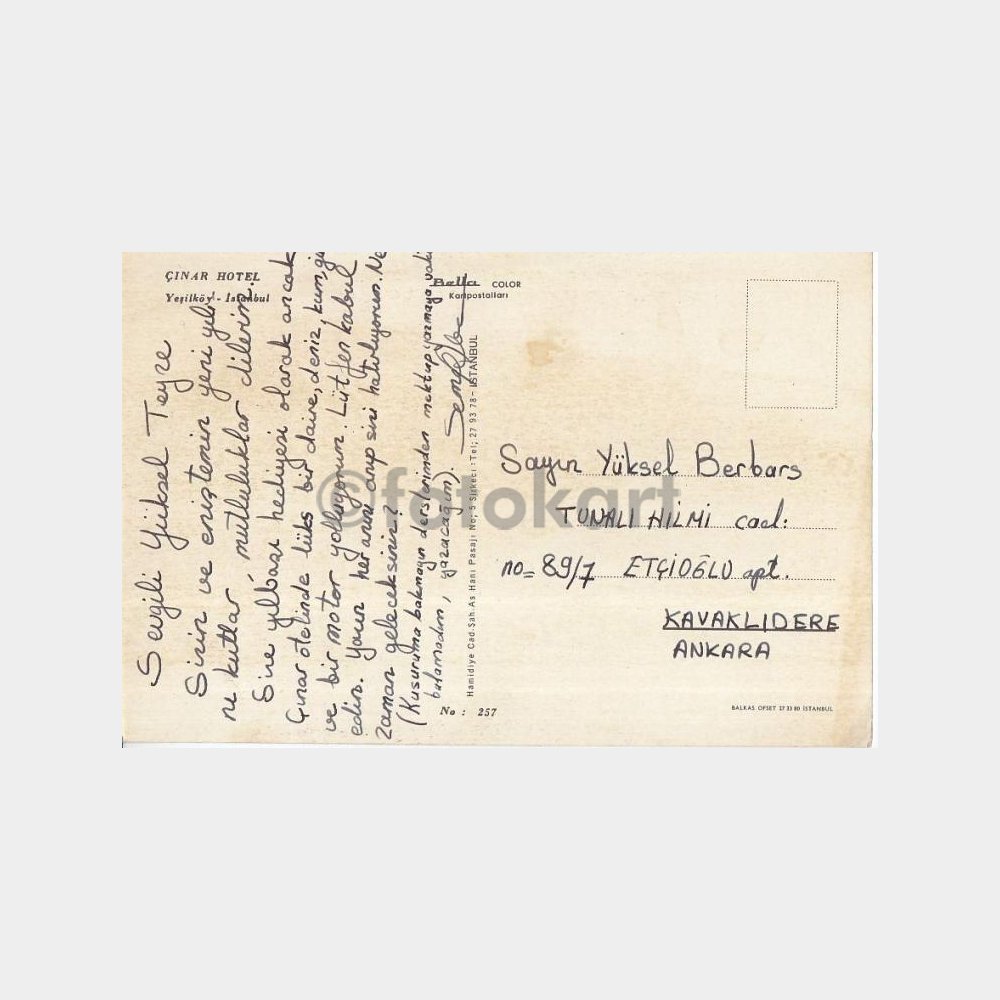 ÇINAR HOTEL
Yeşilköy - Istanbul
Bella COLOR
Kartpostalları
Sevgili Yüksel Teyze
Sizin ve eniştenin yeni yılı
nı kutlar mutluluklar dilerim.
Size yılbaşı hediyesi olarak ancak
Çınar otelinde lüks bir daire, deniz, kum, gü
ve bir motor yolluyorum. Lütfen kabul
edin. Yazın her anını anıp sizi hatırlıyorum. Ne
zaman geleceksiniz?
(Kusuruma bakmayın derslerimden mektup yazmaya vakit
bulamadım, yazacağım).
Hamidiye Cad. Şah. As Hani Pasajı No; 5 Sirkeci : Tel; 27 93 78 - İSTANBUL
Sayın Yüksel Berbars
TUNALI HİLMİ cad:
no= 89/7 ETÇİOĞLU apt.
KAVAKLIDERE
ANKARA
No : 257
BALKAS OFSET 27 33 80 İSTANBUL
©fotokart